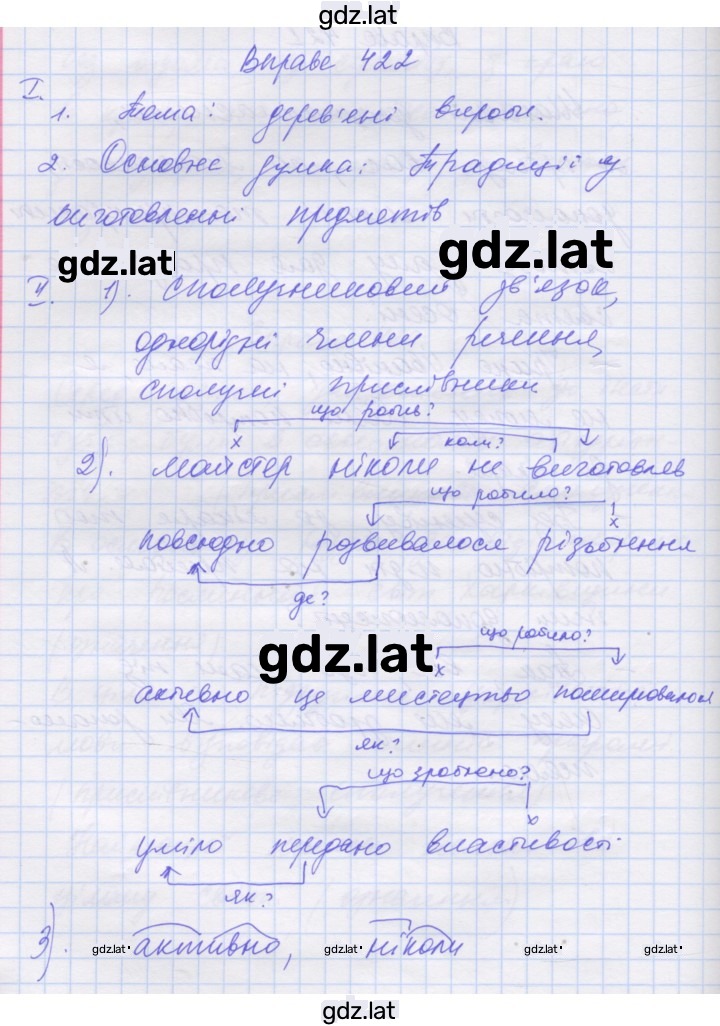 gdz.lat
Вправа 422
I.
1. Тема: дерев'яні вироби.
2. Основна думка: Традиції у
виготовленні предметів
gdz.lat
gdz.lat
II. 1). Сполучниковий зв'язок,
однорідні члени речення,
сполучні прислівники
що робив?
x
коли?
2). майстер ніколи не виготовляв
що робило?
x
повсюдно розвивалося різьблення
де?
gdz.lat
що робило?
x
активно це мистецтво поширювалося
як?
що зроблено?
x
уміло передано властивості
як?
3). активно, ніколи
gdz.lat gdz.lat gdz.lat gdz.lat
gdz.lat